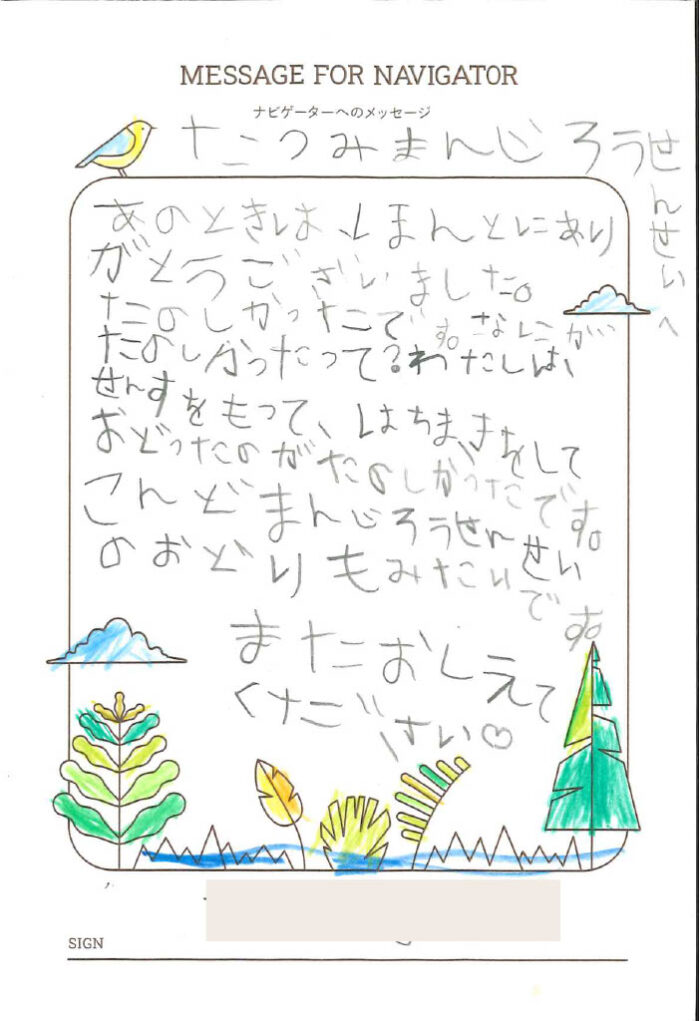 MESSAGE FOR NAVIGATOR
ナビゲーターへのメッセージ
たつみまんじろうせんせいへ
あのときは、ほまんとにあり
がとうございました。
たのしかったこです。なにが
たのしかったって?わたしは、
せんすをもって、はちまきをして
おどったのがたのしかったです。
こんどまんじろうせんせい
のおどりもみたいです。
またおしえて
くださごい♡
SIGN